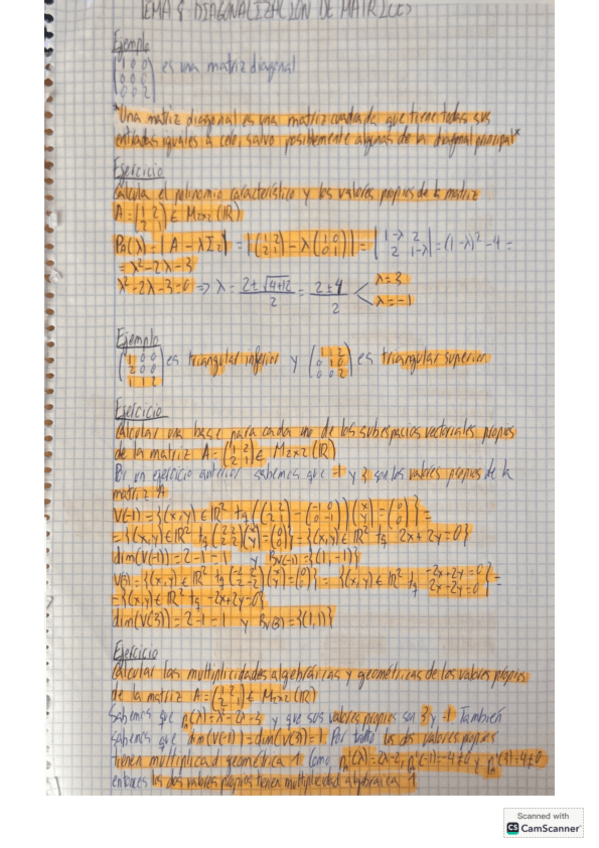 TEMA 8 DIAGONALIZACIÓN DE MATRICES
Ejemplo
(1 0 0
0 0 0
0 0 2) es una matriz diagonal
*Una matriz diagonal es una matriz cuadrada que tiene todas sus
entradas iguales a cero, salvo posiblemente algunas de la diagonal principal*
Ejercicio
Calcula el polinomio característico y los valores propios de la matriz
A = (1 2
2 1) ∈ M2x2 (ℝ)
PA(λ) = |A - λI2| = |(1 2
2 1) - λ(1 0
0 1)| = |1-λ 2
2 1-λ| = (1-λ)² - 4 =
= λ² - 2λ - 3
λ² - 2λ - 3 = 0 => λ = 2 ± √4+12 / 2 = 2 ± 4 / 2 < λ = 3
λ = -1
Ejemplo
(1 0 0
2 0 0
1 1 2) es triangular inferior y (1 1 2
0 0 1
0 0 2) es triangular superior
Ejercicio
Calcular una base para cada uno de los subespacios vectoriales propios
de la matriz A = (1 2
2 1) ∈ M2x2 (ℝ)
un ejercicio anterior sabemos que -1 y 3 son los valores propios de la
matriz A
V(-1) = {(x,y) ∈ ℝ² tq ((1 2
2 1) - (-1 0
0 -1)) (x
y) = (0
0)} =
= {(x,y) ∈ ℝ² tq (2 2
2 2)(x
y) = (0
0)} = {(x,y) ∈ ℝ² tq 2x + 2y = 0}
dim(V(-1)) = 2 - 1 = 1 y BV(-1) = {(1,-1)}
V(3) = {(x,y) ∈ ℝ² tq (-2 2
2 -2)(x
y) = (0
0)} = {(x,y) ∈ ℝ² tq -2x+2y=0
2x-2y=0} =
= {(x,y) ∈ ℝ² tq -2x+2y=0}
dim(V(3)) = 2 - 1 = 1 y BV(3) = {(1,1)}
Ejercicio
Calcular las multiplicidades algebráicas y geométricas de los valores propios
de la matriz A = (1 2
2 1) ∈ M2x2 (ℝ)
Sabemos que PA(λ) = λ² - 2λ - 3 y que sus valores propios son 3 y -1 También
sabemos que dim(V(-1)) = dim(V(3)) = 1 Por tanto los dos valores propios
tienen multiplicidad geométrica 1. Como PA'(λ) = 2λ-2, PA'(-1) = -4 ≠ 0 y PA'(3) = 4 ≠ 0
entonces los dos valores propios tienen multiplicidad algebraica 1
Scanned with
CS CamScanner